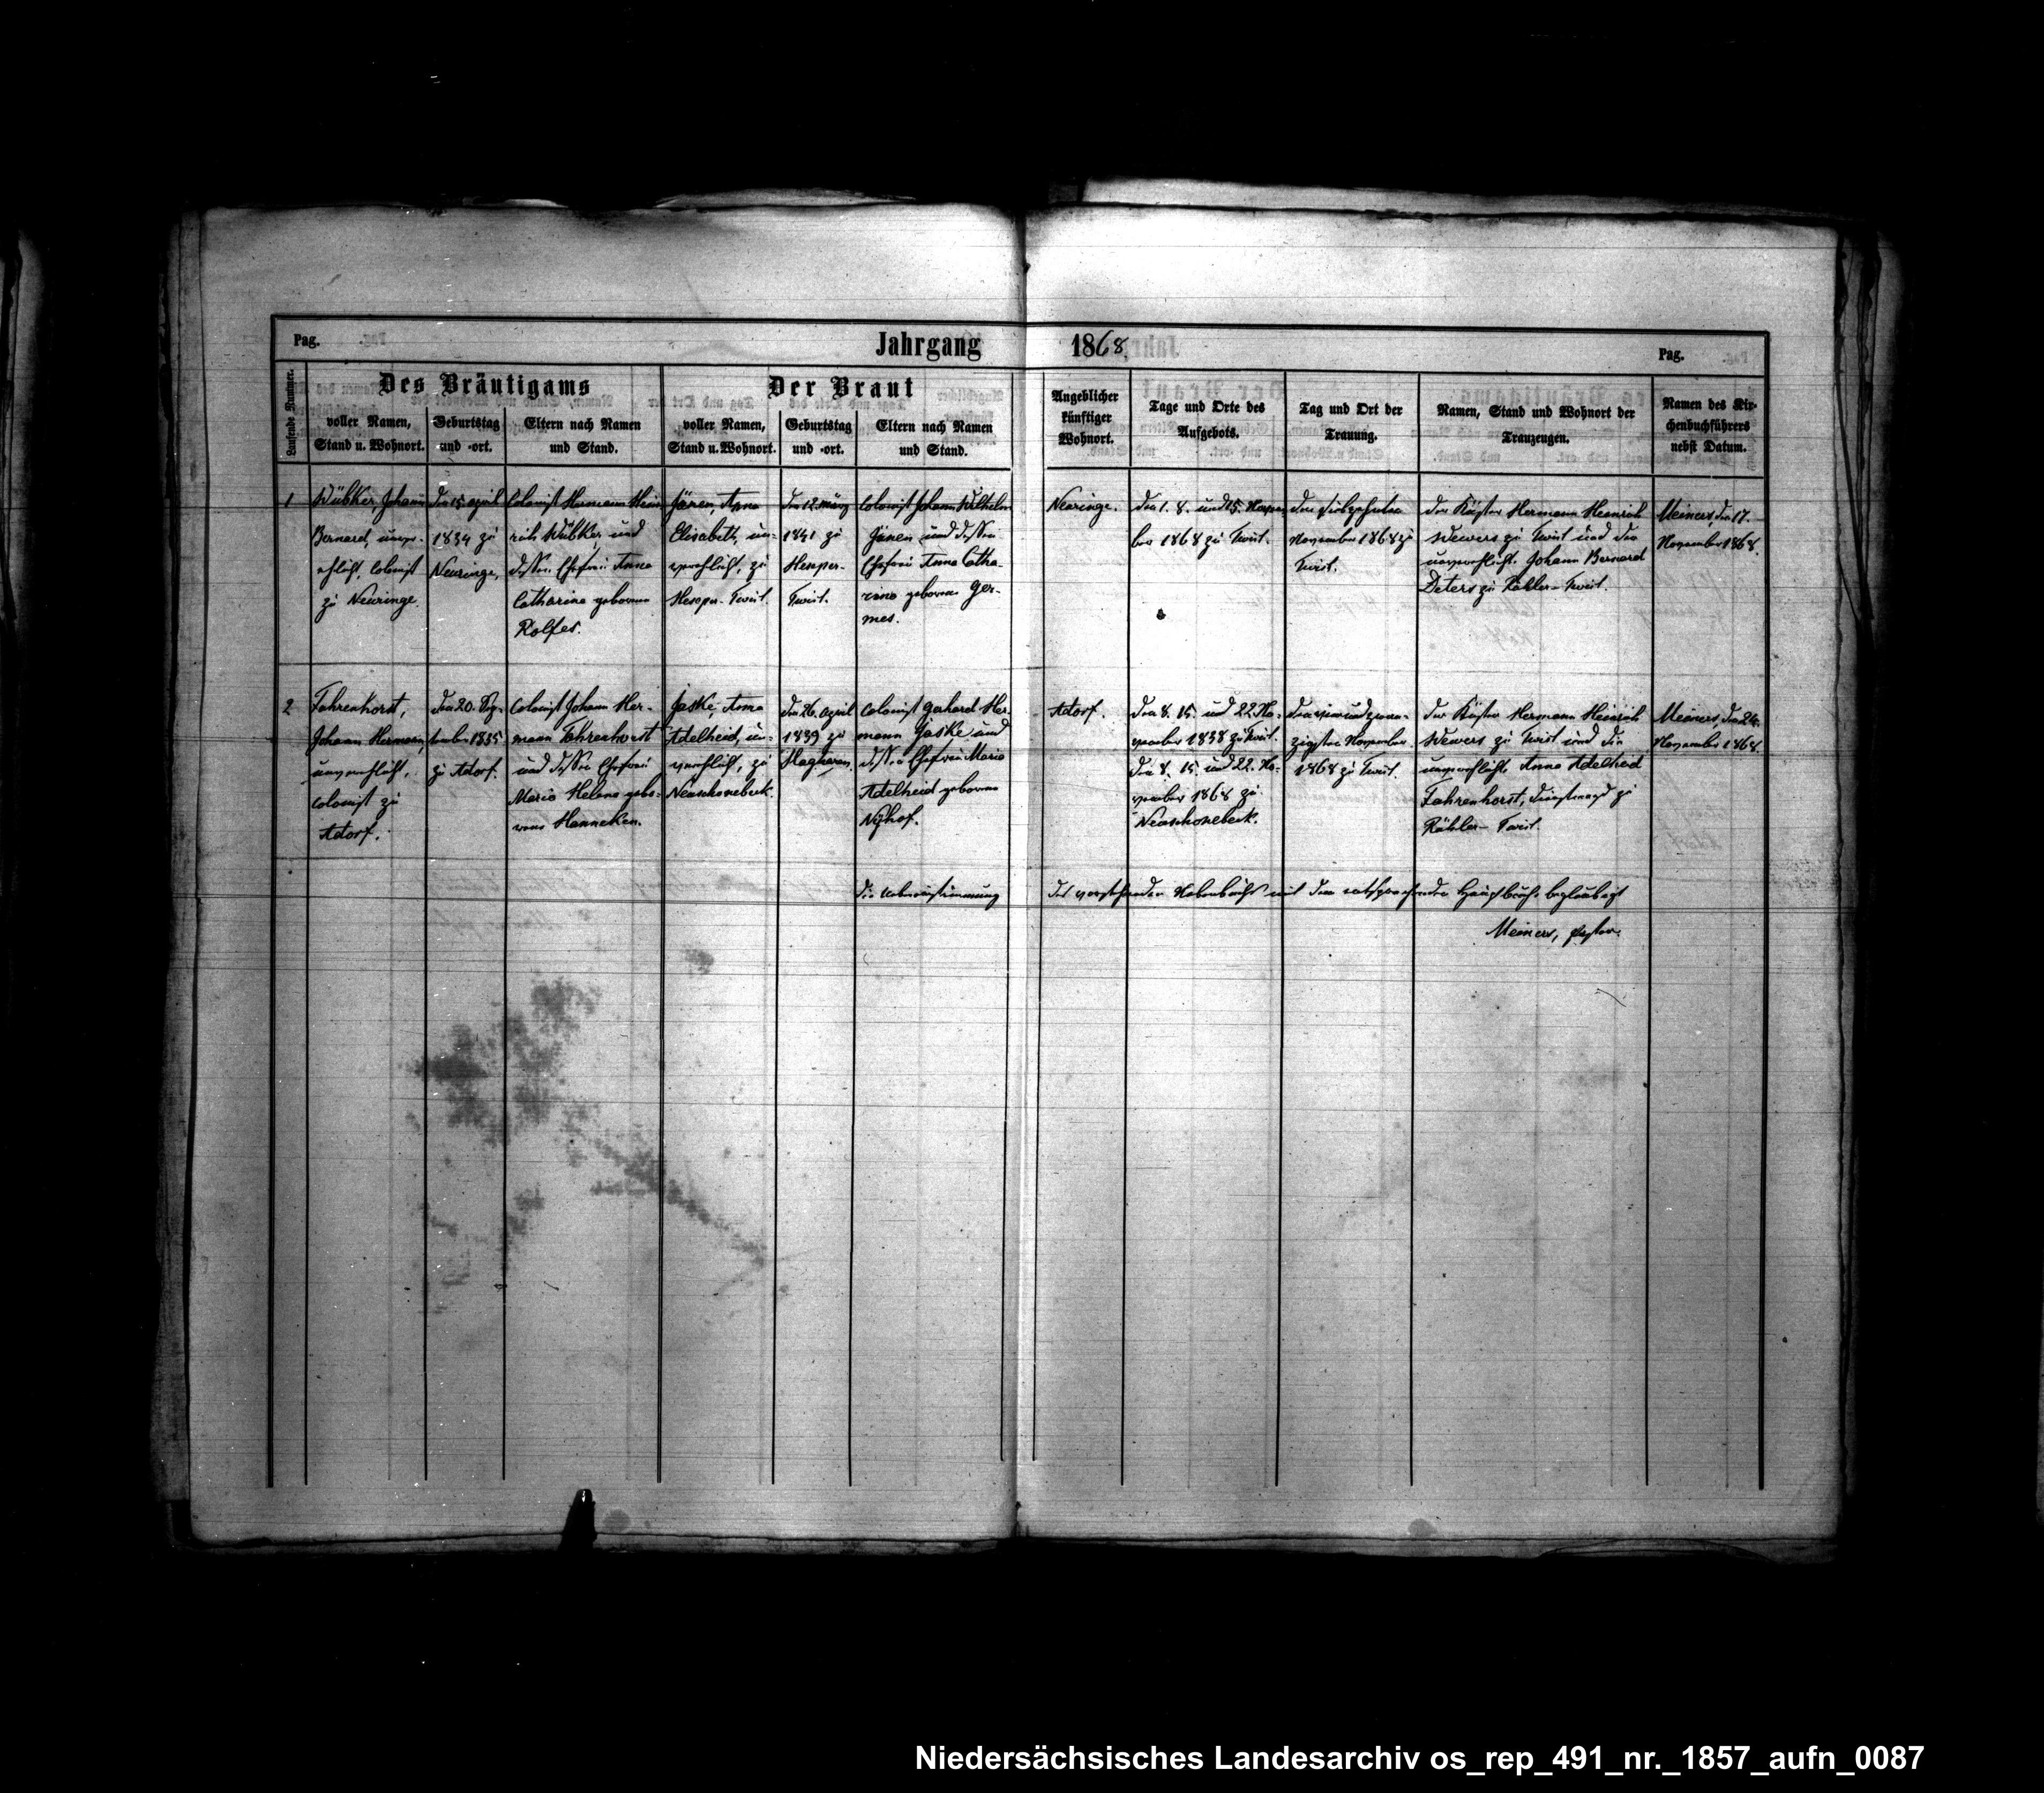 Pag.
Jahrgang 1868.
Pag.
Laufende Nummer.
Des Bräutigams
Der Braut
voller Namen,
Stand u. Wohnort.
Geburtstag
und -ort.
Eltern nach Namen
und Stand.
voller Namen,
Stand u. Wohnort.
Geburtstag
und -ort.
Eltern nach Namen
und Stand.
Angeblicher
künftiger
Wohnort.
Tage und Orte des
Aufgebots.
Tag und Ort der
Trauung.
Namen, Stand und Wohnort der
Trauzeugen.
Namen des Kir-
chenbuchführers
nebst Datum.
1
Wübker, Johann
Bernard, unver-
ehlicht, Colonist
zu Neuringe.
den 15. April
1834 zu
Neuringe,
Colonist Hermann Hein-
rich Wübker und
dessen Ehefrau Anna
Catharina geborene
Rolfes.
Elisabeth, un-
verehlicht, zu
Hesper-Twist.
den 12. März
1841 zu
Hesper-
Twist.
Colonist Johann Wilhelm
und dessen
Ehefrau Anna Catha-
rina geborene Ger-
mes.
Neuringe.
den 1. 8. und 15. Novem-
ber 1868 zu Twist.
den siebzehnten
November 1868 zu
Twist.
der Küster Hermann Heinrich
Wewers zu Twist und der
unverehlichte Johann Bernard
Deters zu Rühler-Twist.
Meiners, den 17.
November 1868.
2
Fahrenhorst,
Johann Hermann,
unverehlicht,
Colonist zu
Adorf.
den 20. Sep-
tember 1835
zu Adorf.
Colonist Johann Her-
mann Fahrenhorst
und dessen Ehefrau
Maria Helena gebo-
rene Hanneken.
Jaske, Anna
Adelheid, un-
verehlicht, zu
Neuschonebeck.
den 26. April
1839 zu
Colonist Gerhard Her-
mann Jaske und
dessen Ehefrau Maria
Adelheid geborene
Nÿhof.
Adorf.
den 8. 15. und 22. No-
vember 1838 zu Twist.
den 8. 15. und 22. No-
vember 1868 zu
Neuschonebeck.
den vierundzwan-
zigsten November
1868 zu Twist.
der Küster Hermann Heinrich
Wewers zu Twist und die
unverehlichte Anna Adelheid
Fahrenhorst, Dienstmagd zu
Rühler-Twist.
Meiners, den 24.
November 1868.
die Uebereinstimmung des vorstehenden Nebenbuchs mit dem entsprechenden Hauptbuche beglaubigt
Meiners, Pastor.
Niedersächsisches Landesarchiv os_rep_491_nr._1857_aufn_0087